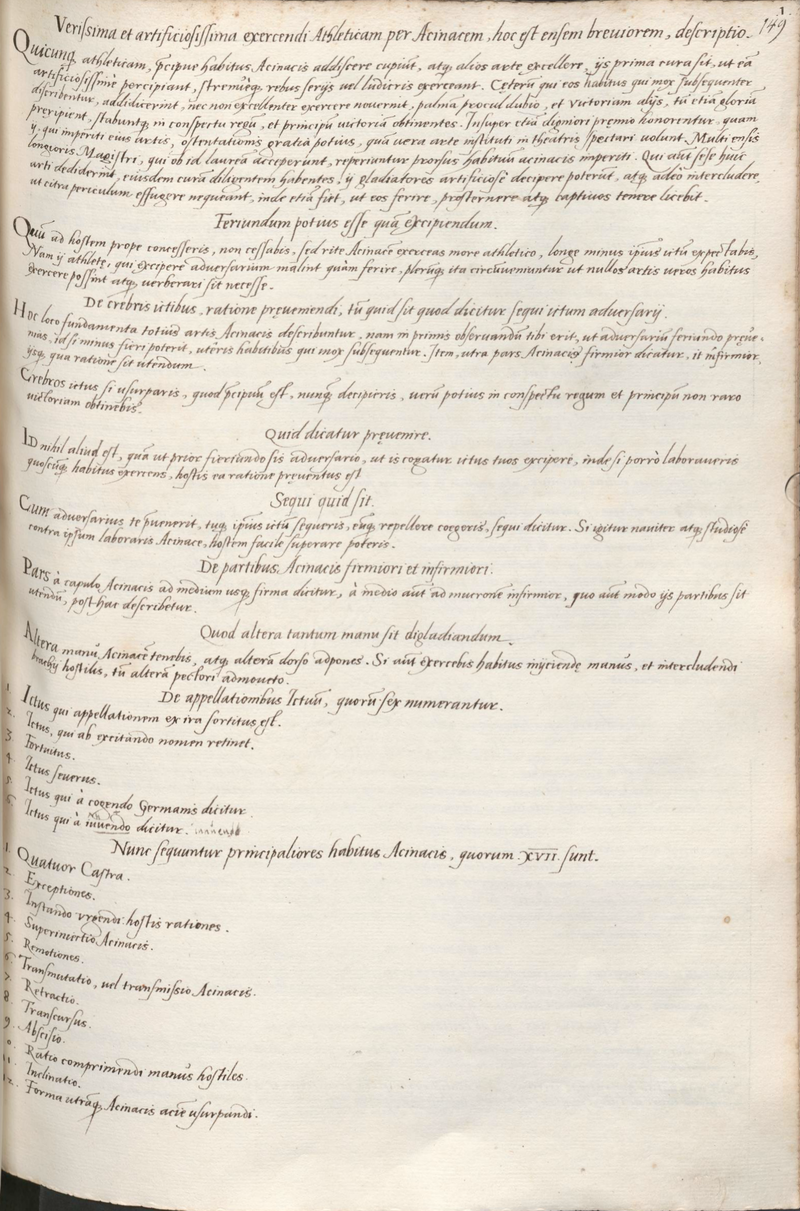 1.
149
Verissima et artificiosissima exercendi Athleticam per Acinacem, hoc est ensem breuiorem, descriptio.
Quicunq̨ athleticam, p̨cipue habitus Acinacis addiscere cupiūt, atq̨ alios arte excellere, ijs prima cura sit, ut eā
artificiosissimè percipiant, strenuèq̨ rebus serijs uel ludicris exerceant. Cęterū qui eos habitus qui mox subsequenter
describentur, addidicerint, nec non excellenter exercere nouerint, palmā procul dubio, et victoriam alijs, tū etiā gloria
preripient, stabuntq̨ in conspectu regū, et principū uictoriā obtinentes. Insuper etiā digniori premio honorentur, quam
ÿ, qui imperiti eius artis, ostentationis gratia potius, quā uera arte instituti in theatris spectari uolunt. Multi ensis
longioris Magistri, qui ob id lauream acceperunt, reperiuntur prorsus habituū acinacis imperiti. Qui aūt sese huic
arti dediderint, eiusdem curā diligentem habentes, ÿ gladiatores artificiosè decipere poterūt, atq̨ adeò intercludere,
ut citra periculum effugere nequeant, inde etiā fiet, ut eos ferire, prosternere atq̨ captiuos tenere licebit.
Feriundum potius esse quā excipiendum.
Quū ad hostem prope concesseris, non cessabis, sed rite Acinacē exerceas more athletico, longe minus ipsius ictū expectabis,
Nam ÿ athletę, qui excipere aduersarium malint quàm ferire, plerūq̨ ita circūueniuntur ut nullos artis ueros habitus
exercere possint atq̨ uerberari sit necesse.
De crebris ictibus, ratione pręueniendi, tū quid sit quod dicitur sequi ictum aduersarij.
Hoc loco fundamenta totius artis Acinacis describuntur, nam in primis obseruandū tibi erit, ut aduersariū feriundo pręue-
nias, id si minus fieri poterit, utêris habitibus qui mox subsequentur. Item, utra pars Acinacis firmior dicatur, et infirmior,
ijsq̨ qua ratione sit utendum.
Crebros ictus si usurparis, quod p̨cipuū est, nunq̨ decipieris, uerū potius in conspectu regum et principū non raro
uictoriam obtinebis.
Quid dicatur pręuenire.
ID nihil aliud est, quā ut prior feriundo sis aduersario, ut is cogatur ictus tuos excipere, inde si porrò laboraueris
quoscūq̨ habitus exercens, hostis ea ratione pręuentus est
Sequi quid sit.
Cum aduersarius te p̨uenerit, tuq̨ ipsius ictū sequeris, eūq̨ repellere coegeris, sequi dicitur. Si igitur nauiter atq̨ studiosè
contra ipsum laboraris Acinace, hostem facile superare poteris.
De partibus Acinacis firmiori et infirmiori.
Pars à capulo Acinacis ad medium usq̨ firma dicitur, à medio aūt ad mucronē infirmior, quo aūt modo ijs partibus sit
utendū, post hac describetur.
Quod altera tantum manu sit digladiandum.
Altera manu Acinacē tenebis, atq̨ alterā dorso adpones. Si aūt exercebis habitus inijciendę manus, et intercludendi
brachij hostilis, tū alterā pectori admoueto.
De appellationibus Ictuū, quorū sex numerantur.
1. Ictus qui appellationem ex ira sortitus est.
2. Ictus, qui ab excitando nomen retinet.
3. Fortuitus.
4. Ictus seuerus.
5. Ictus qui à cogendo Germanis dicitur
6. Ictus qui à innuendo dicitur.
Nunc sequuntur principaliores habitus Acinacis, quorum XVII. sunt.
1. Quatuor Castra.
2. Exceptiones.
3. Instando vrgendi hostis rationes.
4. Superinuectio Acinacis.
5. Remotiones.
6. Transmutatio, uel transmissio Acinacis.
7. Retractio.
8. Transcursus.
9. Abscisio.
0. Ratio comprimendi manus hostiles.
11. Inclinatio.
12. Forma utrāq̨ Acinacis aciē usurpandi.